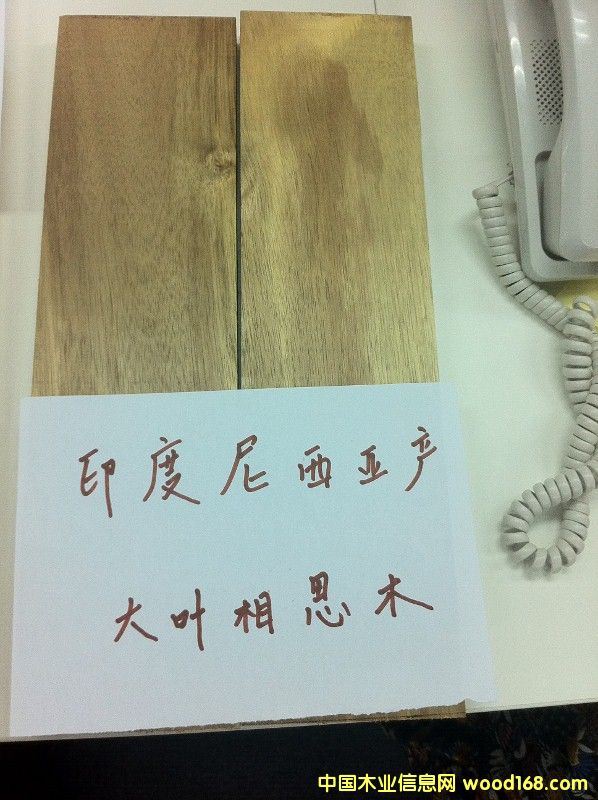 印度尼西亚产
大叶相思木
中国木业信息网 wood168.com